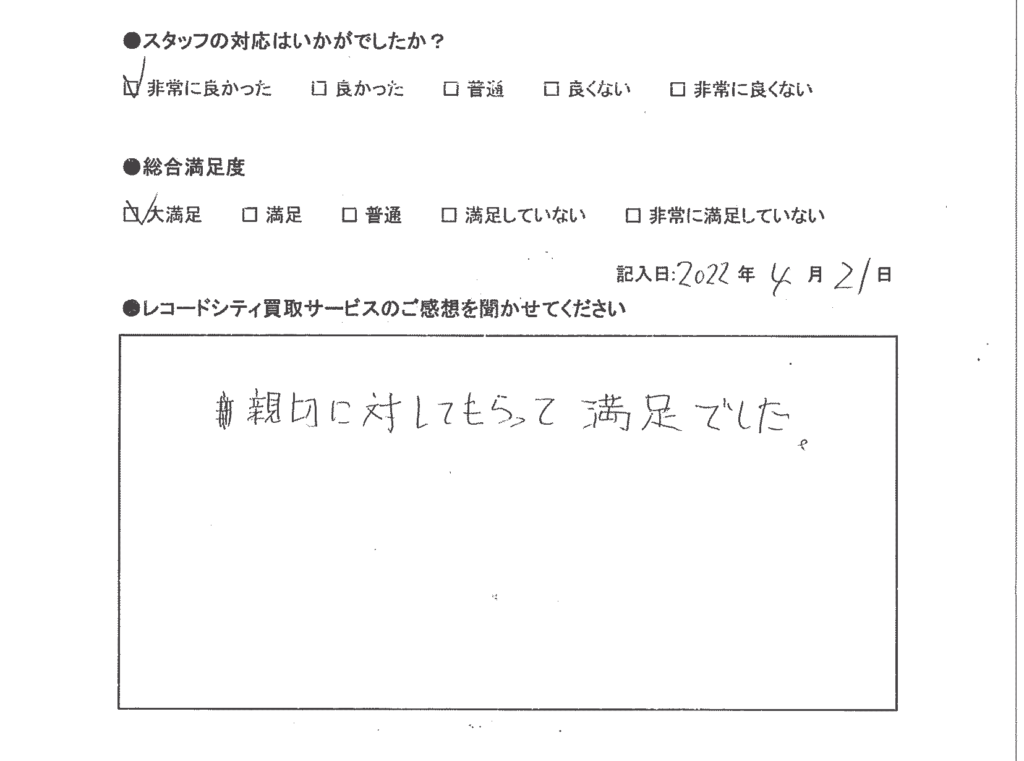 ●スタッフの対応はいかがでしたか？
☑ 非常に良かった □ 良かった □ 普通 □ 良くない □ 非常に良くない
●総合満足度
☑ 大満足 □ 満足 □ 普通 □ 満足していない □ 非常に満足していない
記入日:2022 年 4 月 21 日
●レコードシティ買取サービスのご感想を聞かせてください
親切に対してもらって満足でした。